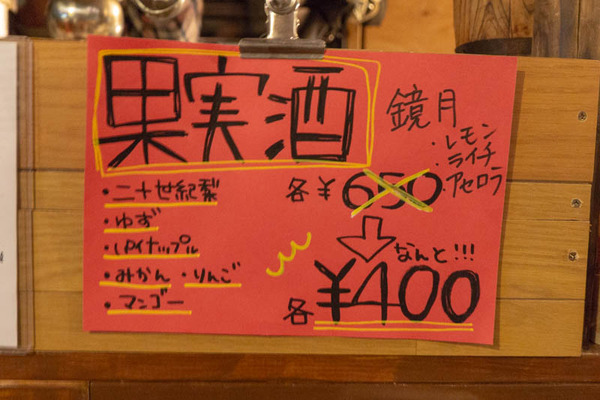 果実酒
鏡月
・レモン
・ライチ
・アセロラ
・二十世紀梨
・ゆず
・パイナップル
・みかん ・りんご
・マンゴー
各¥650
なんと!!!
各¥400